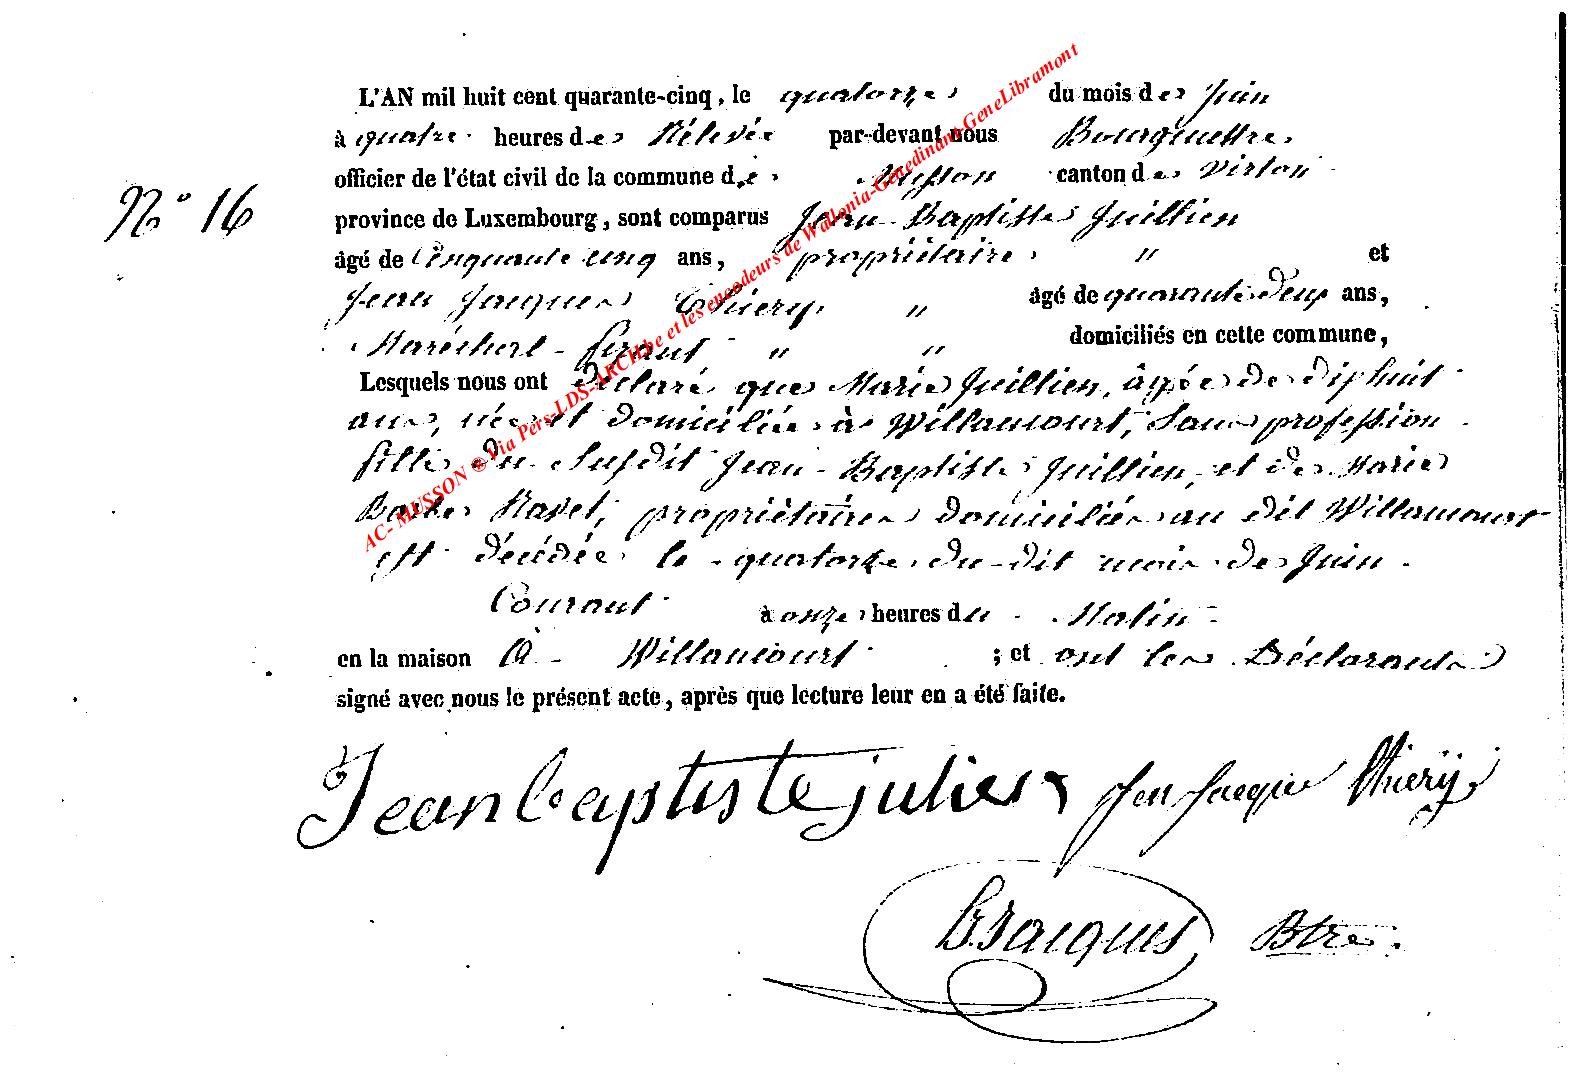 L'AN mil huit cent quarante-cinq, le quatorze du mois de Juin
à quatre heures de Rélevée par-devant nous Bourguettre
officier de l'état civil de la commune de Musson canton de Virton
N° 16
province de Luxembourg, sont comparus Jean Baptiste Juillien
âgé de Cinquante cinq ans, propriétaire " et
Jean Jacques Thiery " âgé de quarante deux ans,
Maréchal-ferant " " domiciliés en cette commune,
Lesquels nous ont déclaré que Marie Juillien, âgée de dixhuit
ans, née et domiciliée à Willancourt, Sans profession
fille du Susdit Jean-Baptiste Juillien, et de Marie
Barbe Navet, propriètaires domiciliés au dit Willancourt
est décédée le quatorze du-dit mois de Juin
Courant à onze heures du Matin
en la maison à Willancourt ; et ont les Déclarants
signé avec nous le présent acte, après que lecture leur en a été faite.
Jean baptiste julien Jen Jacque thiery
Jacques Btre.
AC-MUSSON © Via Pers-LDS-ARCH.be et les encodeurs de Wallonia-Genedinant-GeneLibramont